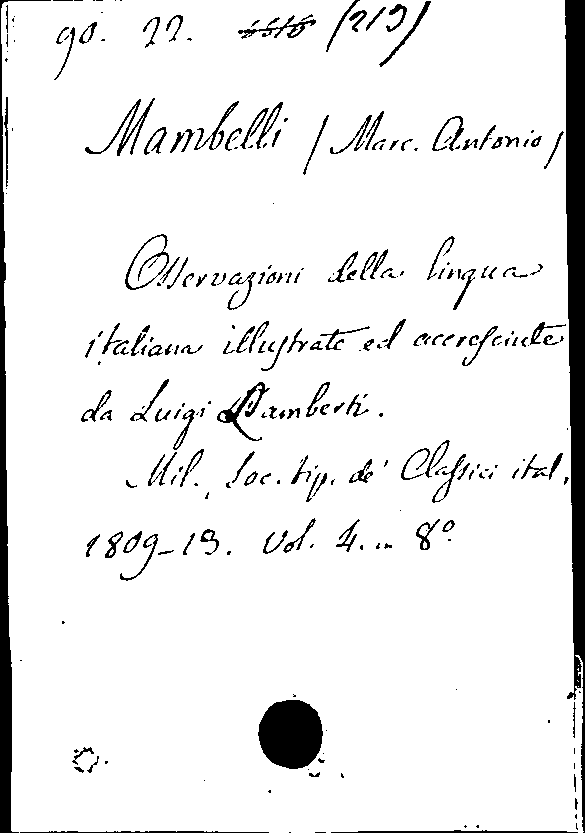 90. 22. (213)
Mambelli / Marc. Antonio /
Osservazioni della lingua
italiana illustrate ed accresciute
da Luigi Lamberti.
Mil., Soc. tip. de' Classici ital.,
1809-13. Vol. 4. in 8º